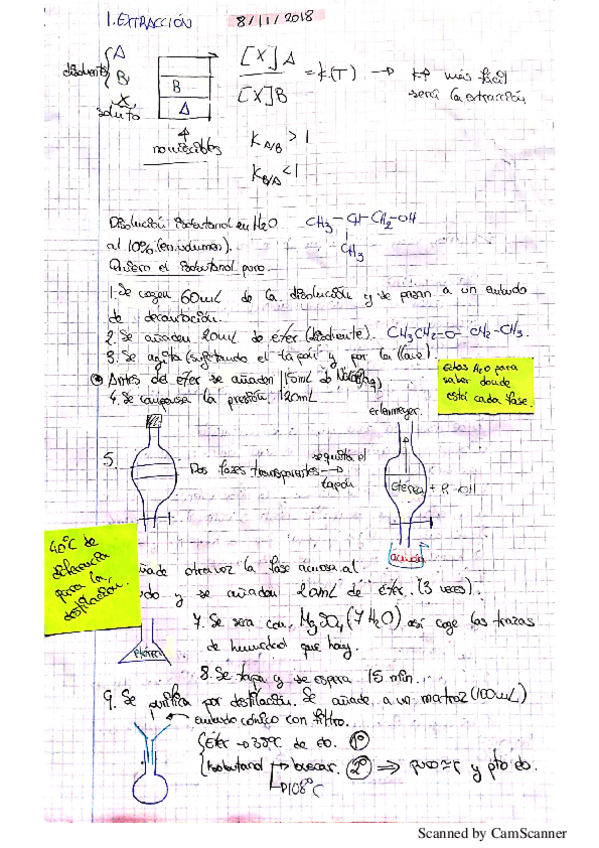 1. EXTRACCIÓN 8/11/2018
disolvente { A
B
X
soluto
B
A
no miscibles
[X]A / [X]B = K(T) → K↑ más fácil
será la extracción
K A/B > 1
K B/A < 1
Disolución isobutanol en H2O
al 10% (en volumen).
Quiero el isobutanol puro.
CH3-CH-CH2-OH
CH3
1. Se cogen 60mL de la disolución y se pasan a un embudo
de decantación.
2. Se añaden 20mL de éter (disolvente). CH3CH2-O-CH2-CH3.
3. Se agita (sujetando el tapón y por la llave).
Antes del éter se añaden 15mL de
4. Se compensa la presión. 20mL
Gotas H2O para
saber donde
está cada fase.
erlenmeyer.
5.
Dos fases transparentes → se quita el
tapón
etérea + R-OH
acuosa
40°C de
diferencia
para la
destilación.
otra vez la fase acuosa al
y se añaden 20mL de éter. (3 veces).
etérea
7. Se seca con MgSO4 (7H2O) así coge las trazas
de humedad que hay.
8. Se tapa y se espera 15 min.
9. Se purifica por destilación. Se añade a un matraz (100mL)
embudo cónico con filtro.
Éter → 35°C de eb. 1º
Isobutanol → buscar. 2º ⇒ y pto eb.
108°C
Scanned by CamScanner